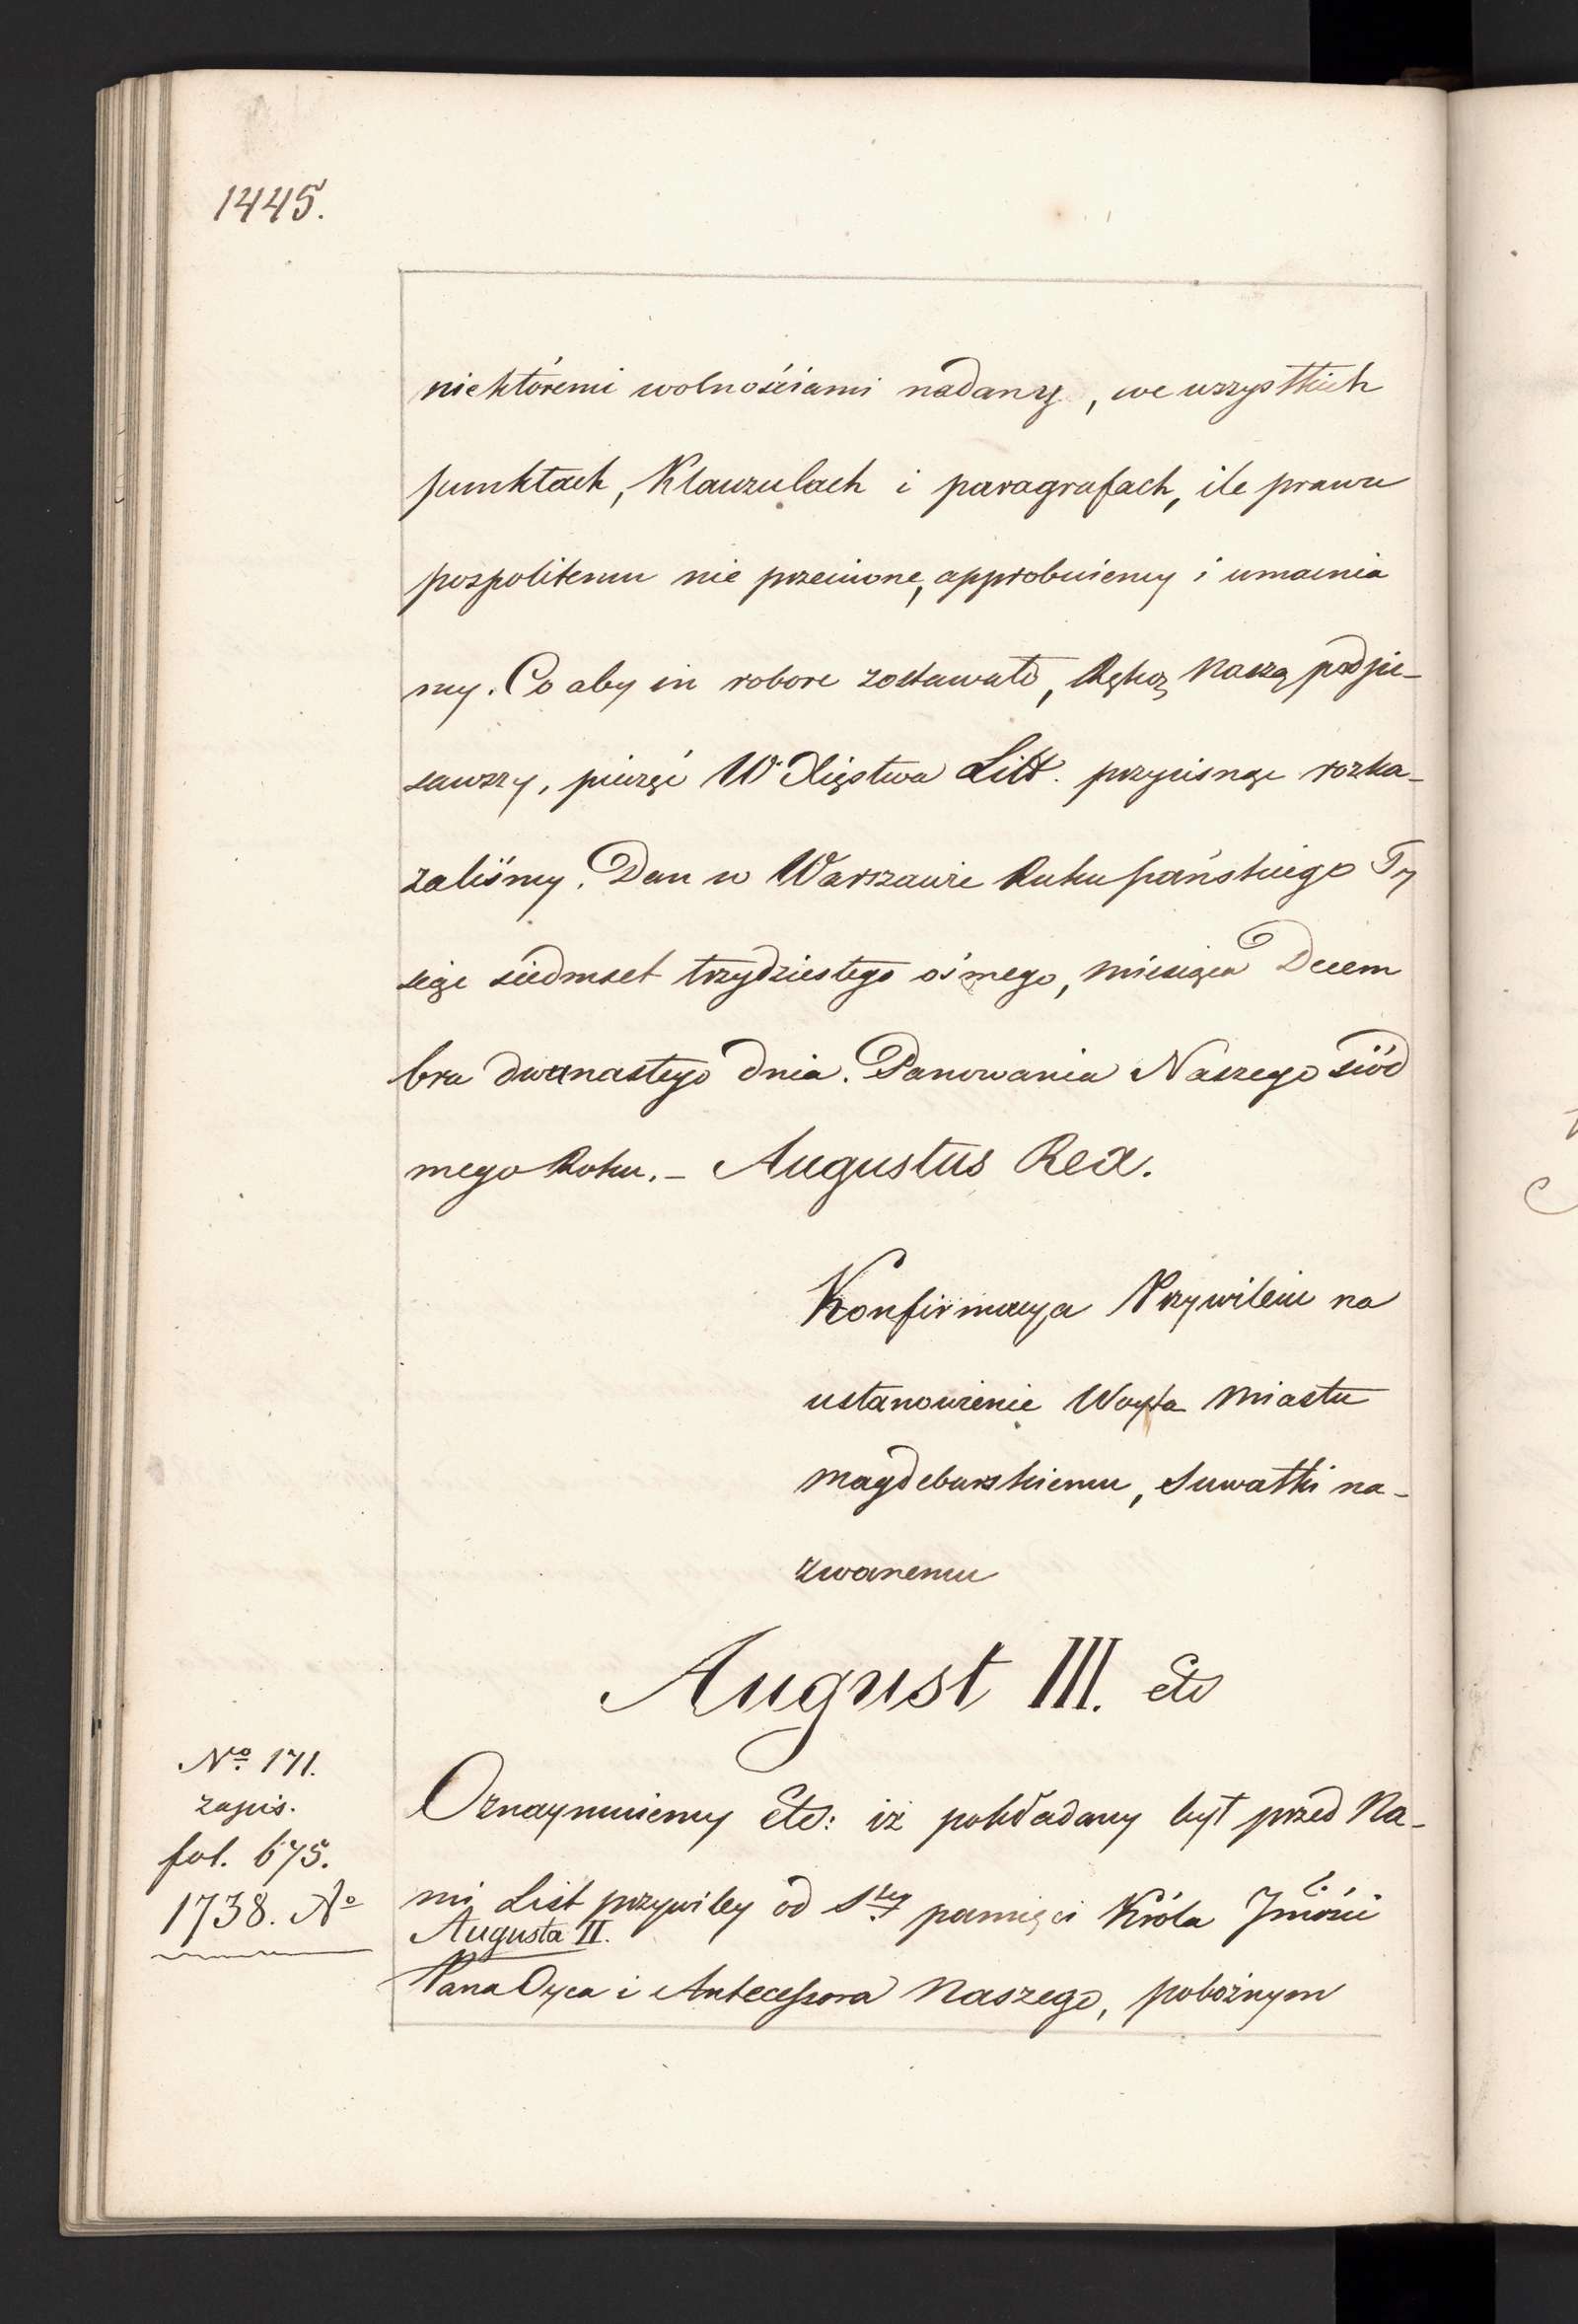 1445.
niektóremi wolnościami nadany, we wszystkich
punktach, Klauzulach i paragrafach, ile prawu
pospolitemu nie przeciwne, approbuiemy i umacnia
my. Co aby in robore zostawało, Ręką Naszą podpi-
sawszy, pieczęć W. Xięstwa Litt. przycisnąć rozka-
zaliśmy. Dan w Warszawie Roku pańskiego Ty
siąc siedmset trzydziestego ósmego, miesiąca Decem
bra dwunastego dnia. Panowania Naszego siód
mego Roku. - Augustus Rex.
Konfirmacya Przywileiu na
ustanowienie Woyta Miastu
Magdeburskiemu, Suwałki na-
zwanemu
August III. Etc
No 171.
zapis.
fol. 675.
1738. Ao
Oznaymuiemy Etc: iż pokładany był przed Na-
mi List przywiley od Stey pamięci Króla Jmości
Augusta II.
Pana Oyca i Antecessora Naszego, pobożnym